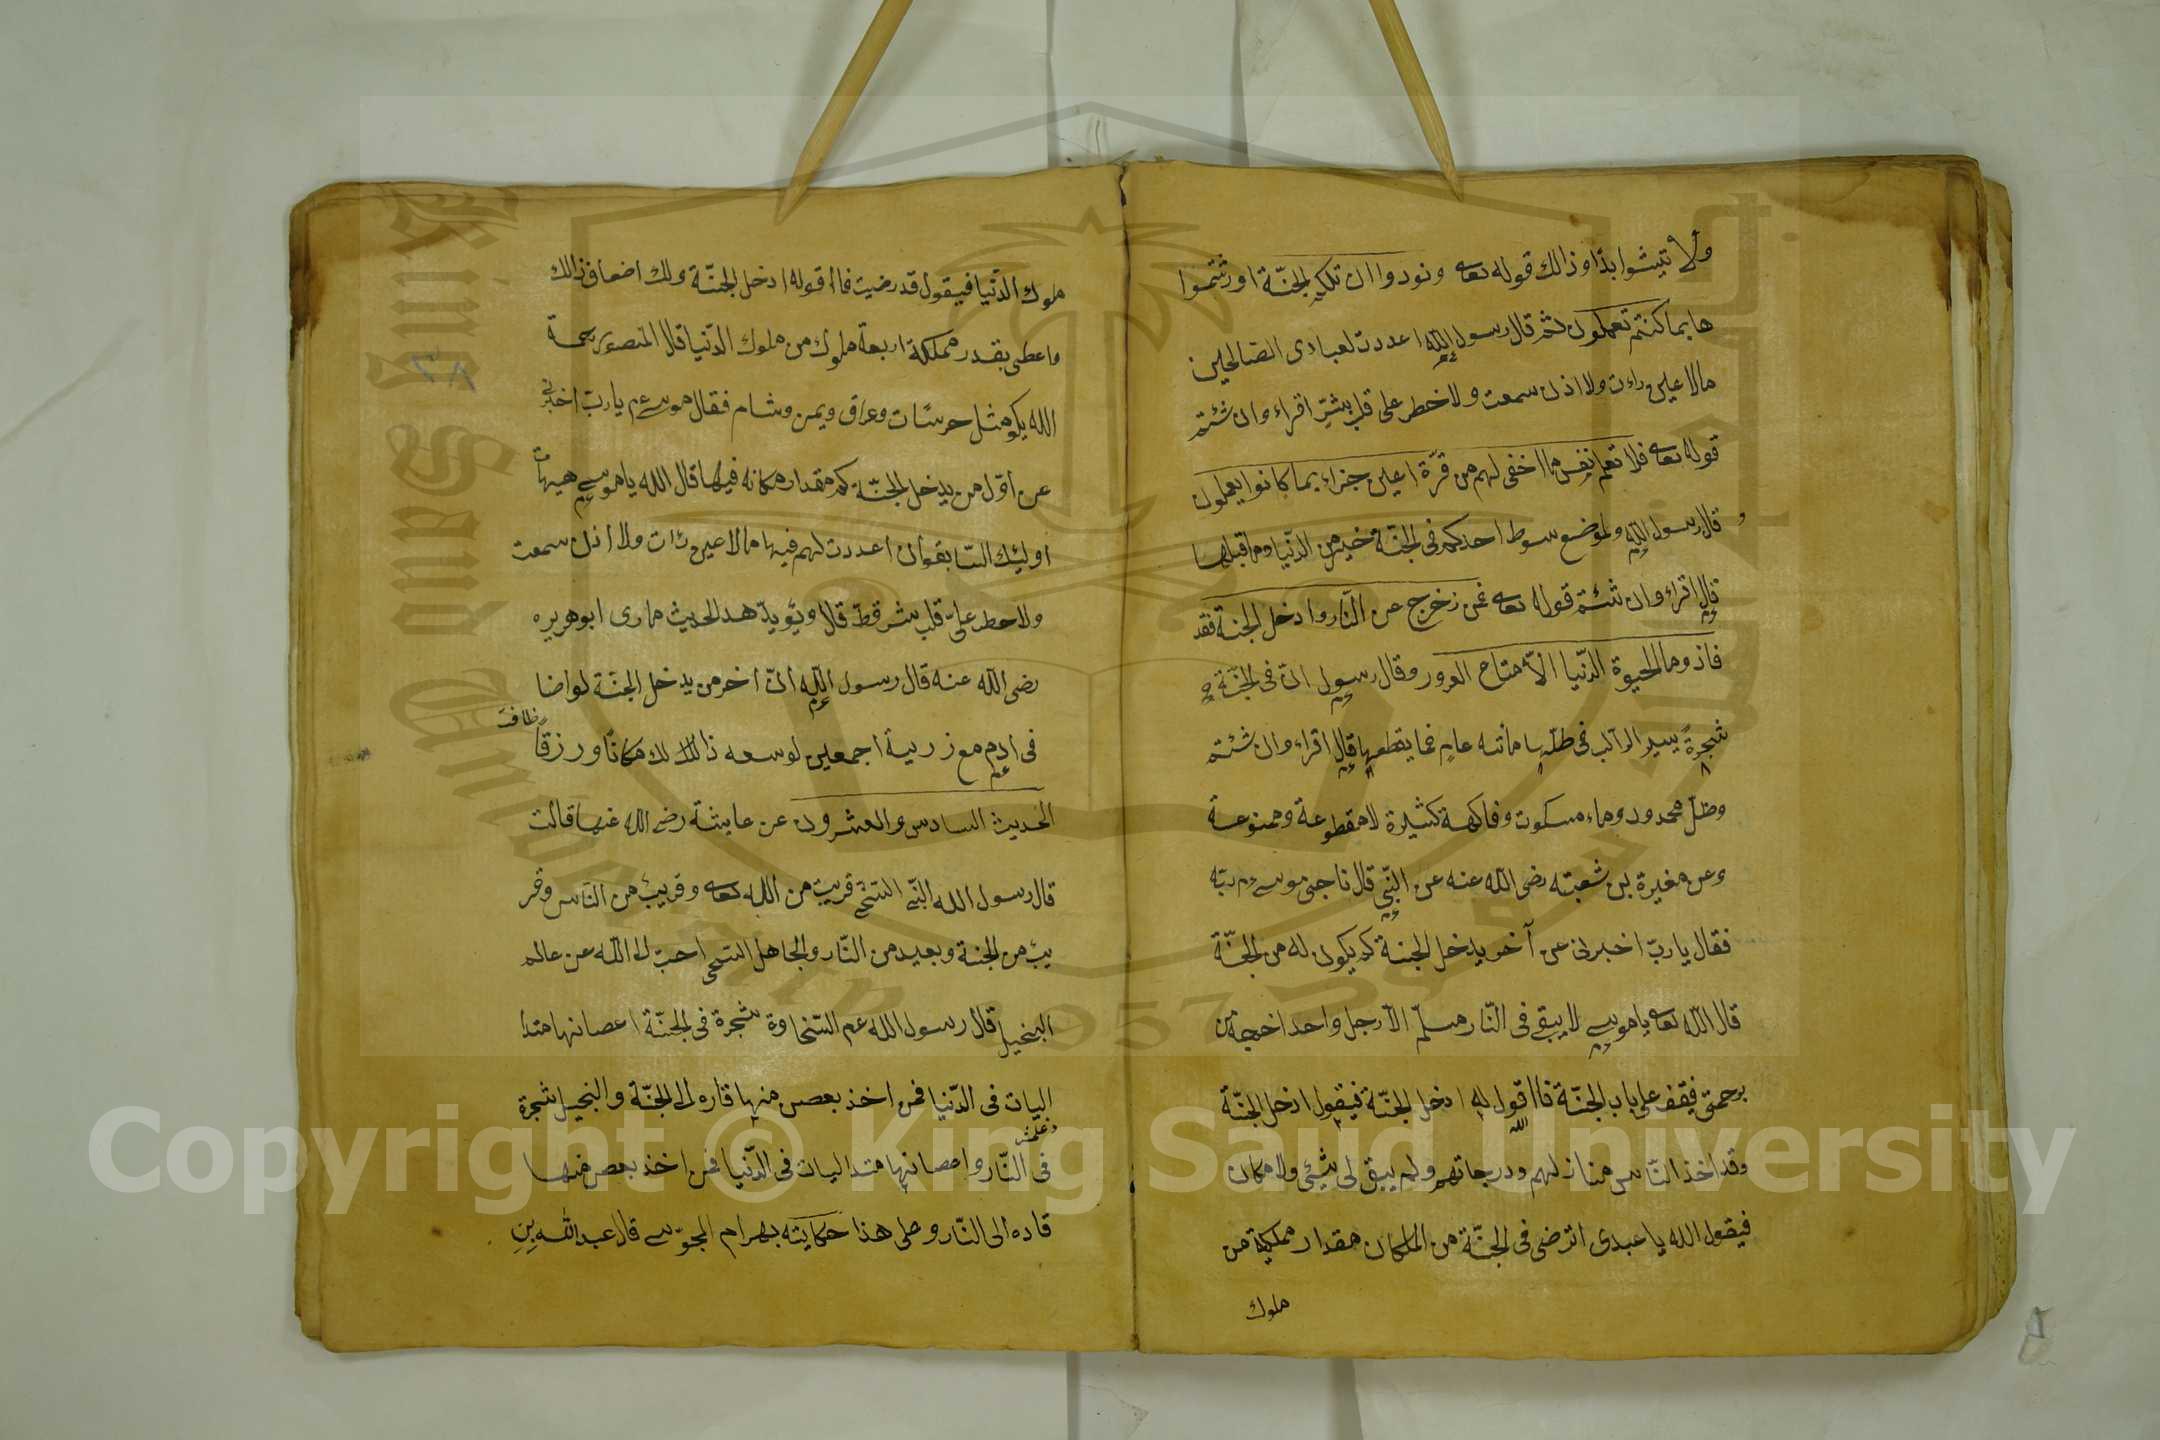 ولا تيئسوا بدا وذالك قوله تعا ونودوا ان تلكم الجنّة اورثتموا
ها بما كنتم تعملون ثم قال رسول الله اعددت لعبادى الصّالحين
مالا عين رات ولا اذن سمعت ولا خطر على قلب بشرٍ اقراء وان شئتم
قوله تعا فلا تعلم نفس ما اخفى لهم من قرّة اعين جزاء بما كانوا يعملون
و قال رسول الله ولموضع سوط احدكم فى الجنّة خير من الدّنيا وما قبلها
قال اقراء وان شئتم قوله تعا فمن زحزح عن النّار وادخل الجنة فقد
فاز وما الحيوة الدّنيا الاّ متاح الغرور وقال رسول انّ فى الجنّة
شجرةً يسير الرّاكب فى ظلّها مائة عامٍ فما يقطعها قال اقراء وان شئتم
وظلّ ممدود وماء مسكوت وفاكهة كثيرة لا مقطوعة وممنوعة
وعن مغيرة بن شعبته رضى الله عنه عن النّبى قال ناجى موسى ربّه
فقال يا ربّ اخبرنى عن آخر يدخل الجنة كم يكون له من الجنّة
قال اللّه تعا يا موسى لا يبقى فى النّار مسلّم الاّ رجل واحد اخرجه من
برحمتى فيقف على باب الجنّة فاا قول له ادخل الجنّة فيقول ادخل الجنّة
الله
وقد اخذ النّاس منازلهم ودرجاتهم ولم يبق لى شيئى ولا مكان
فيقول الله يا عبدى اترضى فى الجنّة من المكان مقدار مملكة من
ملوك
ملوك الدّنيا فيقول قد رضيت فاا قوله ادخل الجنّة ولك اضعاف ذالك
واعطى بقدر مملكة اربعة ملوك من ملوك الدّنيا قال المنصور رحمة
الله يكو مثل حرسات وعراق ويمن وشام فقال موسى عم يا ربّ اخبرنى
عن اوّل من يدخل الجنّة كم مقدار مكانه فيها قال الله يا موسى هيهات
اوليئك السّابقون اعددت لهم فيها مالا عين رئات ولا اذن سمعت
ولا حطر على قلب بشر قطّ قال ويؤيد هد الحديث ما رى ابو هريره
رضى اللّه عنه قال رسول اللّه انّ اخر من يدخل الجنّة لو اضا
ظافت
فى ادم مع زرية اجمعين لوسعه ذالك لك مكانًا ورزقاً
الحديث السادس والعشرون عن عايشة رضى الله عنها قالت
قال رسول الله النّبى السّخى قريب من الله تعا وقريب من النّاس وقر
يب من الجنة وبعيد من النّار والجاهل السخى احب الى اللّه عن عالم
البخيل قال رسول الله عم السّخاوة شجرة فى الجنّة اعصانها متدا
اليات فى الدّنيا فمن اخذ بعصن منها قاره الى الجنّة والبخيل شجرة
فى النّار واعصانها متداليات فى الدّنيا فمن اخذ بعصن منها
قاده الى النّار وعلى هذا حكايته بهرام المجوّسى قال عبد الله بن
٣٨
King Saud University
1957
Copyright © King Saud University